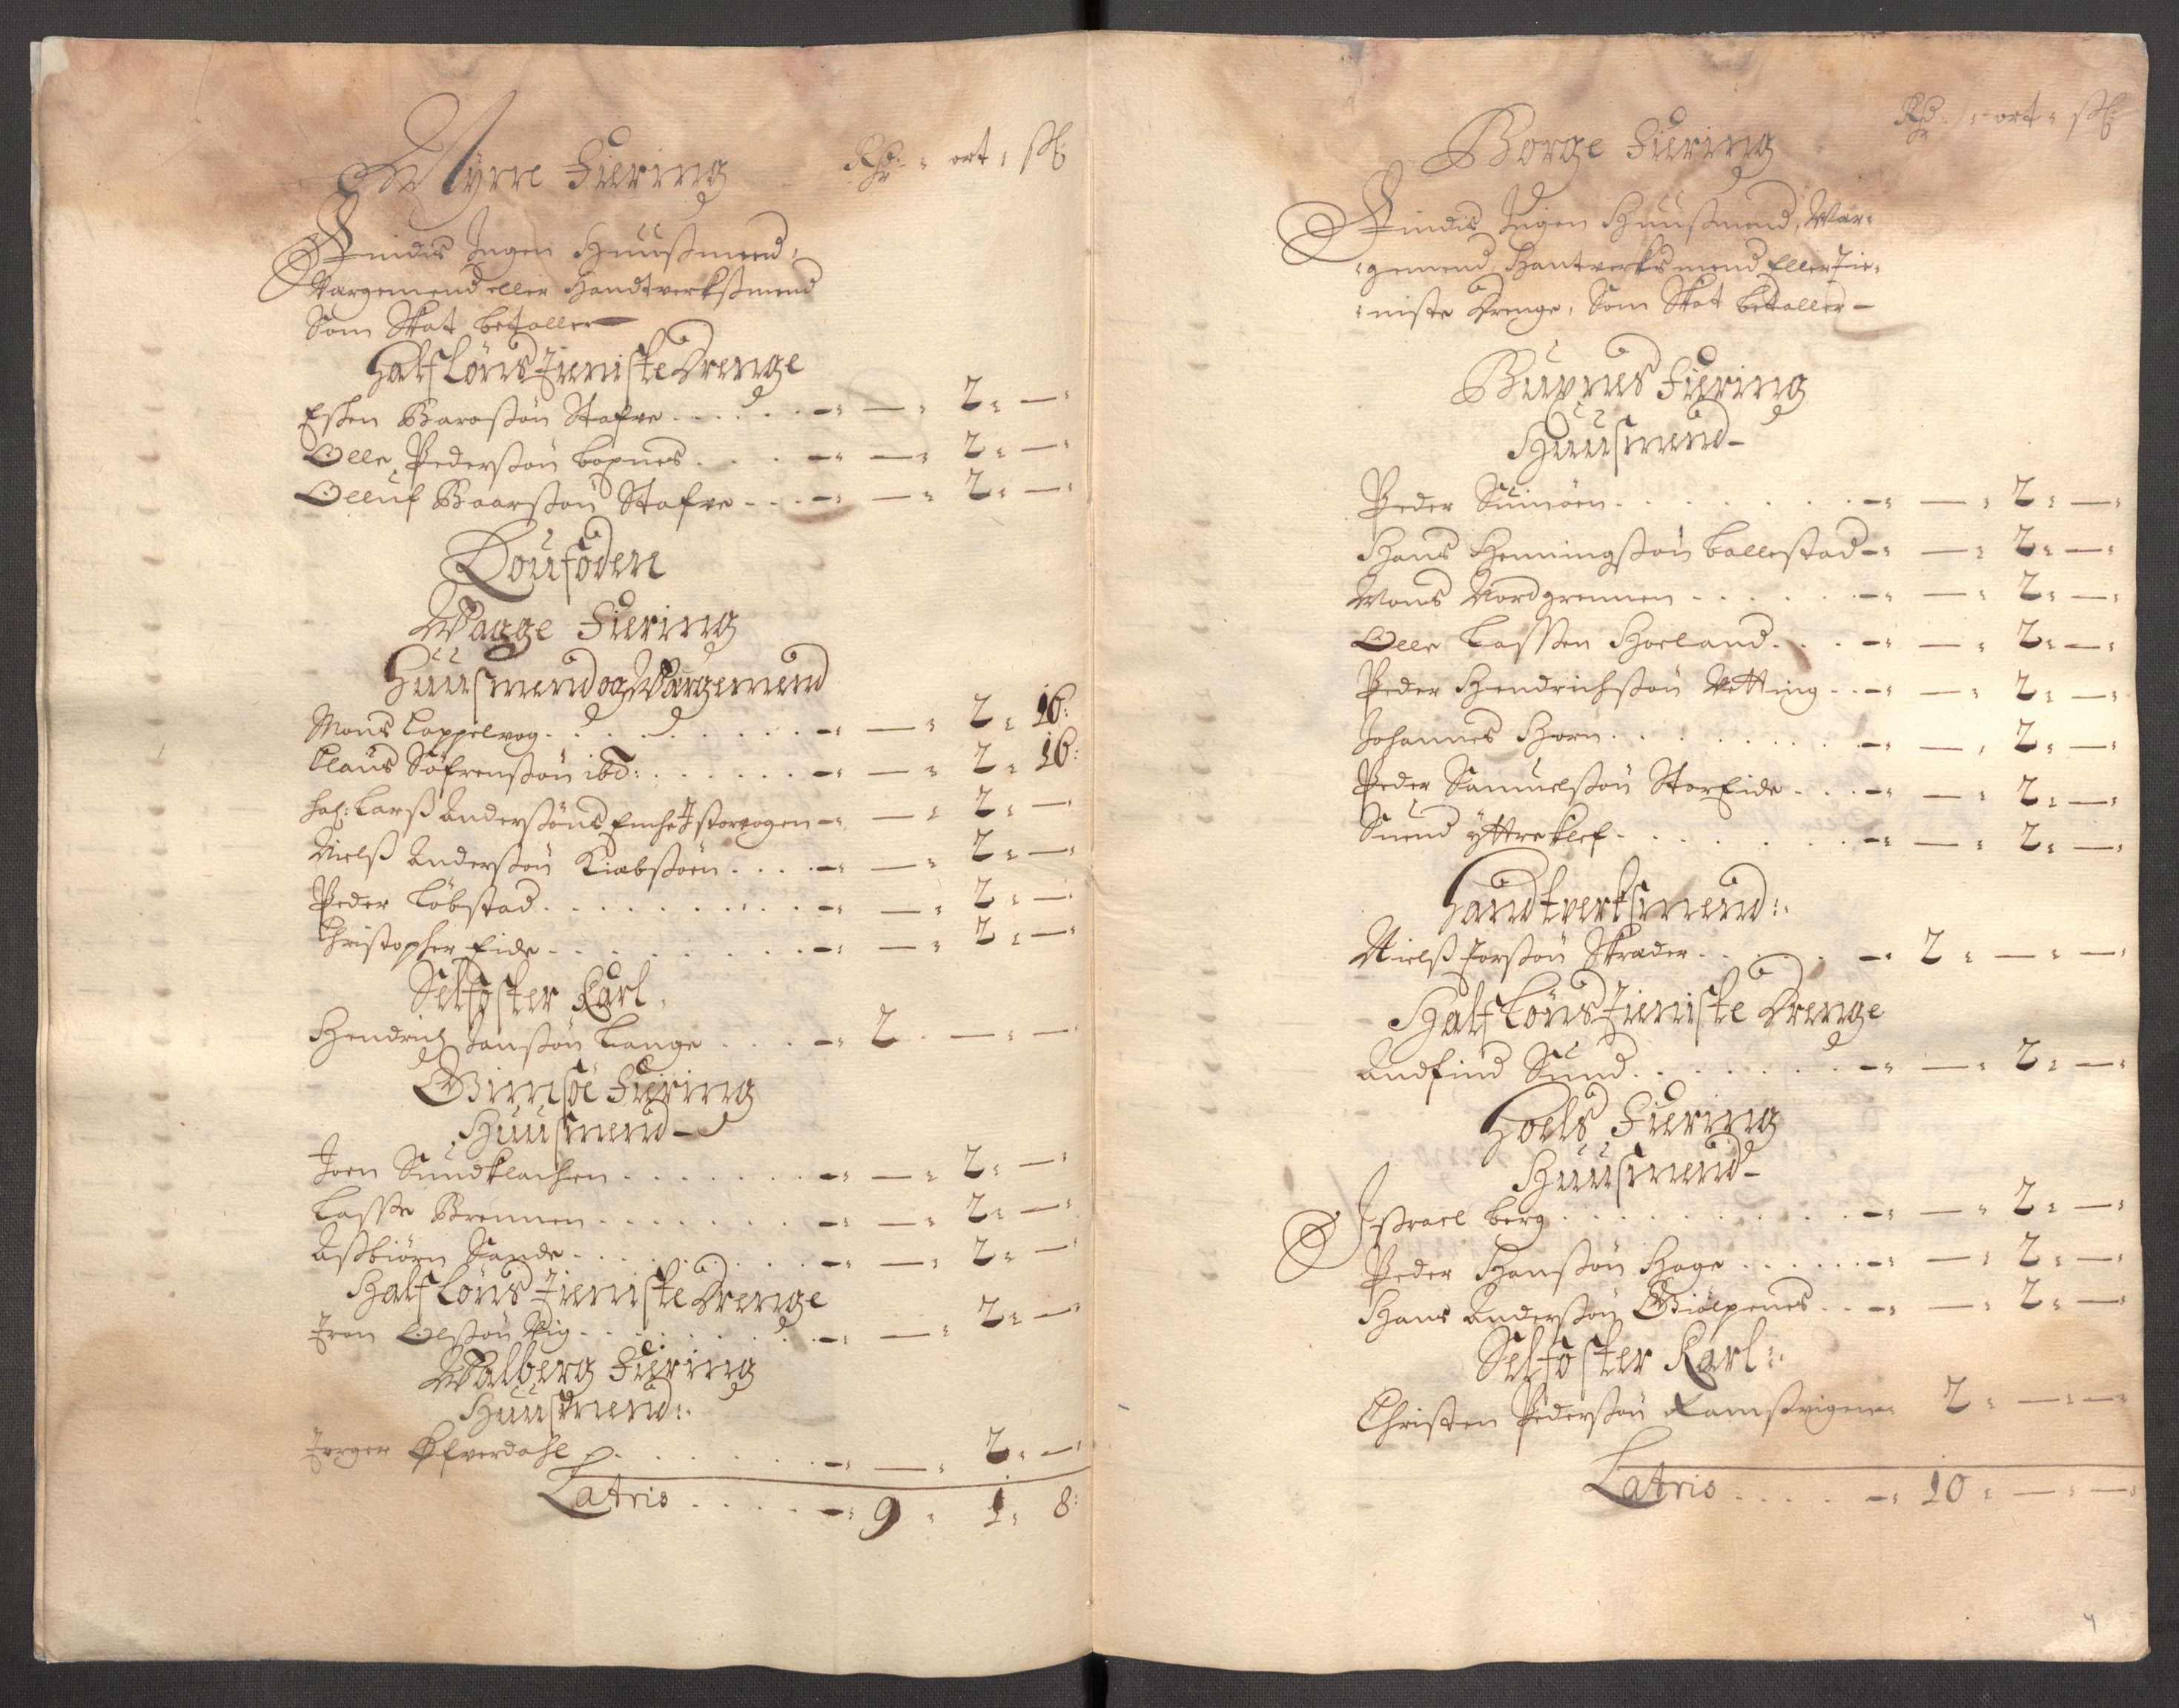 Myrre Fiering Rdr: ort: ſkl:
Findis Ingen Huusmend,
Wargemend eller Handtverksmend
Som Skat betaller
Half Løns Tieniste Drenge
Esken Baarsøn Stafve - - 2 -
Olle Pedersøn bopnes - - 2 -
Olluf Baarsøn Stafve - - 2 -
Loufoden
Waage Fiering
Huusmend og Wargemend
Mons Cappelvog - - 2 16:
Claus Søfrensøn ibd: - - 2 16:
Sal: Lars Andersøns Enche I storvogen - - 2 -
Niels Andersøn Kiabsøen - - 2 -
Peder Løbstad - - 2 -
Christopher Eide - - 2 -
Selfoster Karl
Hendrich Jansøn Lange - 2 - -
Gimsøe Fiering
Huusmend
Joen Sundklachen - - 2 -
Lasse Brennen - - 2 -
Asbiørn Sande - - 2 -
Half Løns Tieniste Drenge
Iron Olsøn Vig - - 2 -
Walberg Fiering
Huusmend:
Jørgen Ofverdahl - - 2 -
Latris - 9 1 8:
Borge Fiering Rdr: ort: ſkl:
Findis Ingen Huusmend, War-
gemend Hantverksmend Eller Tie-
niste Drenge, Som Skat betaller
Buxnes Fiering
Huusmend
Peder Sunøen - - 2 -
Hans Henningsøn ballestad - - 2 -
Mons Nordgrennen - - 2 -
Olle Lassen Horland - - 2 -
Peder Hendrichsøn Vetting - - 2 -
Johannes Horn - - 2 -
Peder Samuelsøn StorEide - - 2 -
Suend yttreklef - - 2 -
Handtverksmend:
Niels Jorsøn Skrader - 2 - -
Half Løns Tieniste Drenge
Andfind Sund - - 2 -
Hoels Fiering
Huusmend
Isrvael berg - - 2 -
Peder Hansøn Hage - - 2 -
Hans Andersøn Giølpenes - - 2 -
Selfoster Karl:
Christen Pedersøn Ramsvigen 2 - -
Latris - 10 - -
4